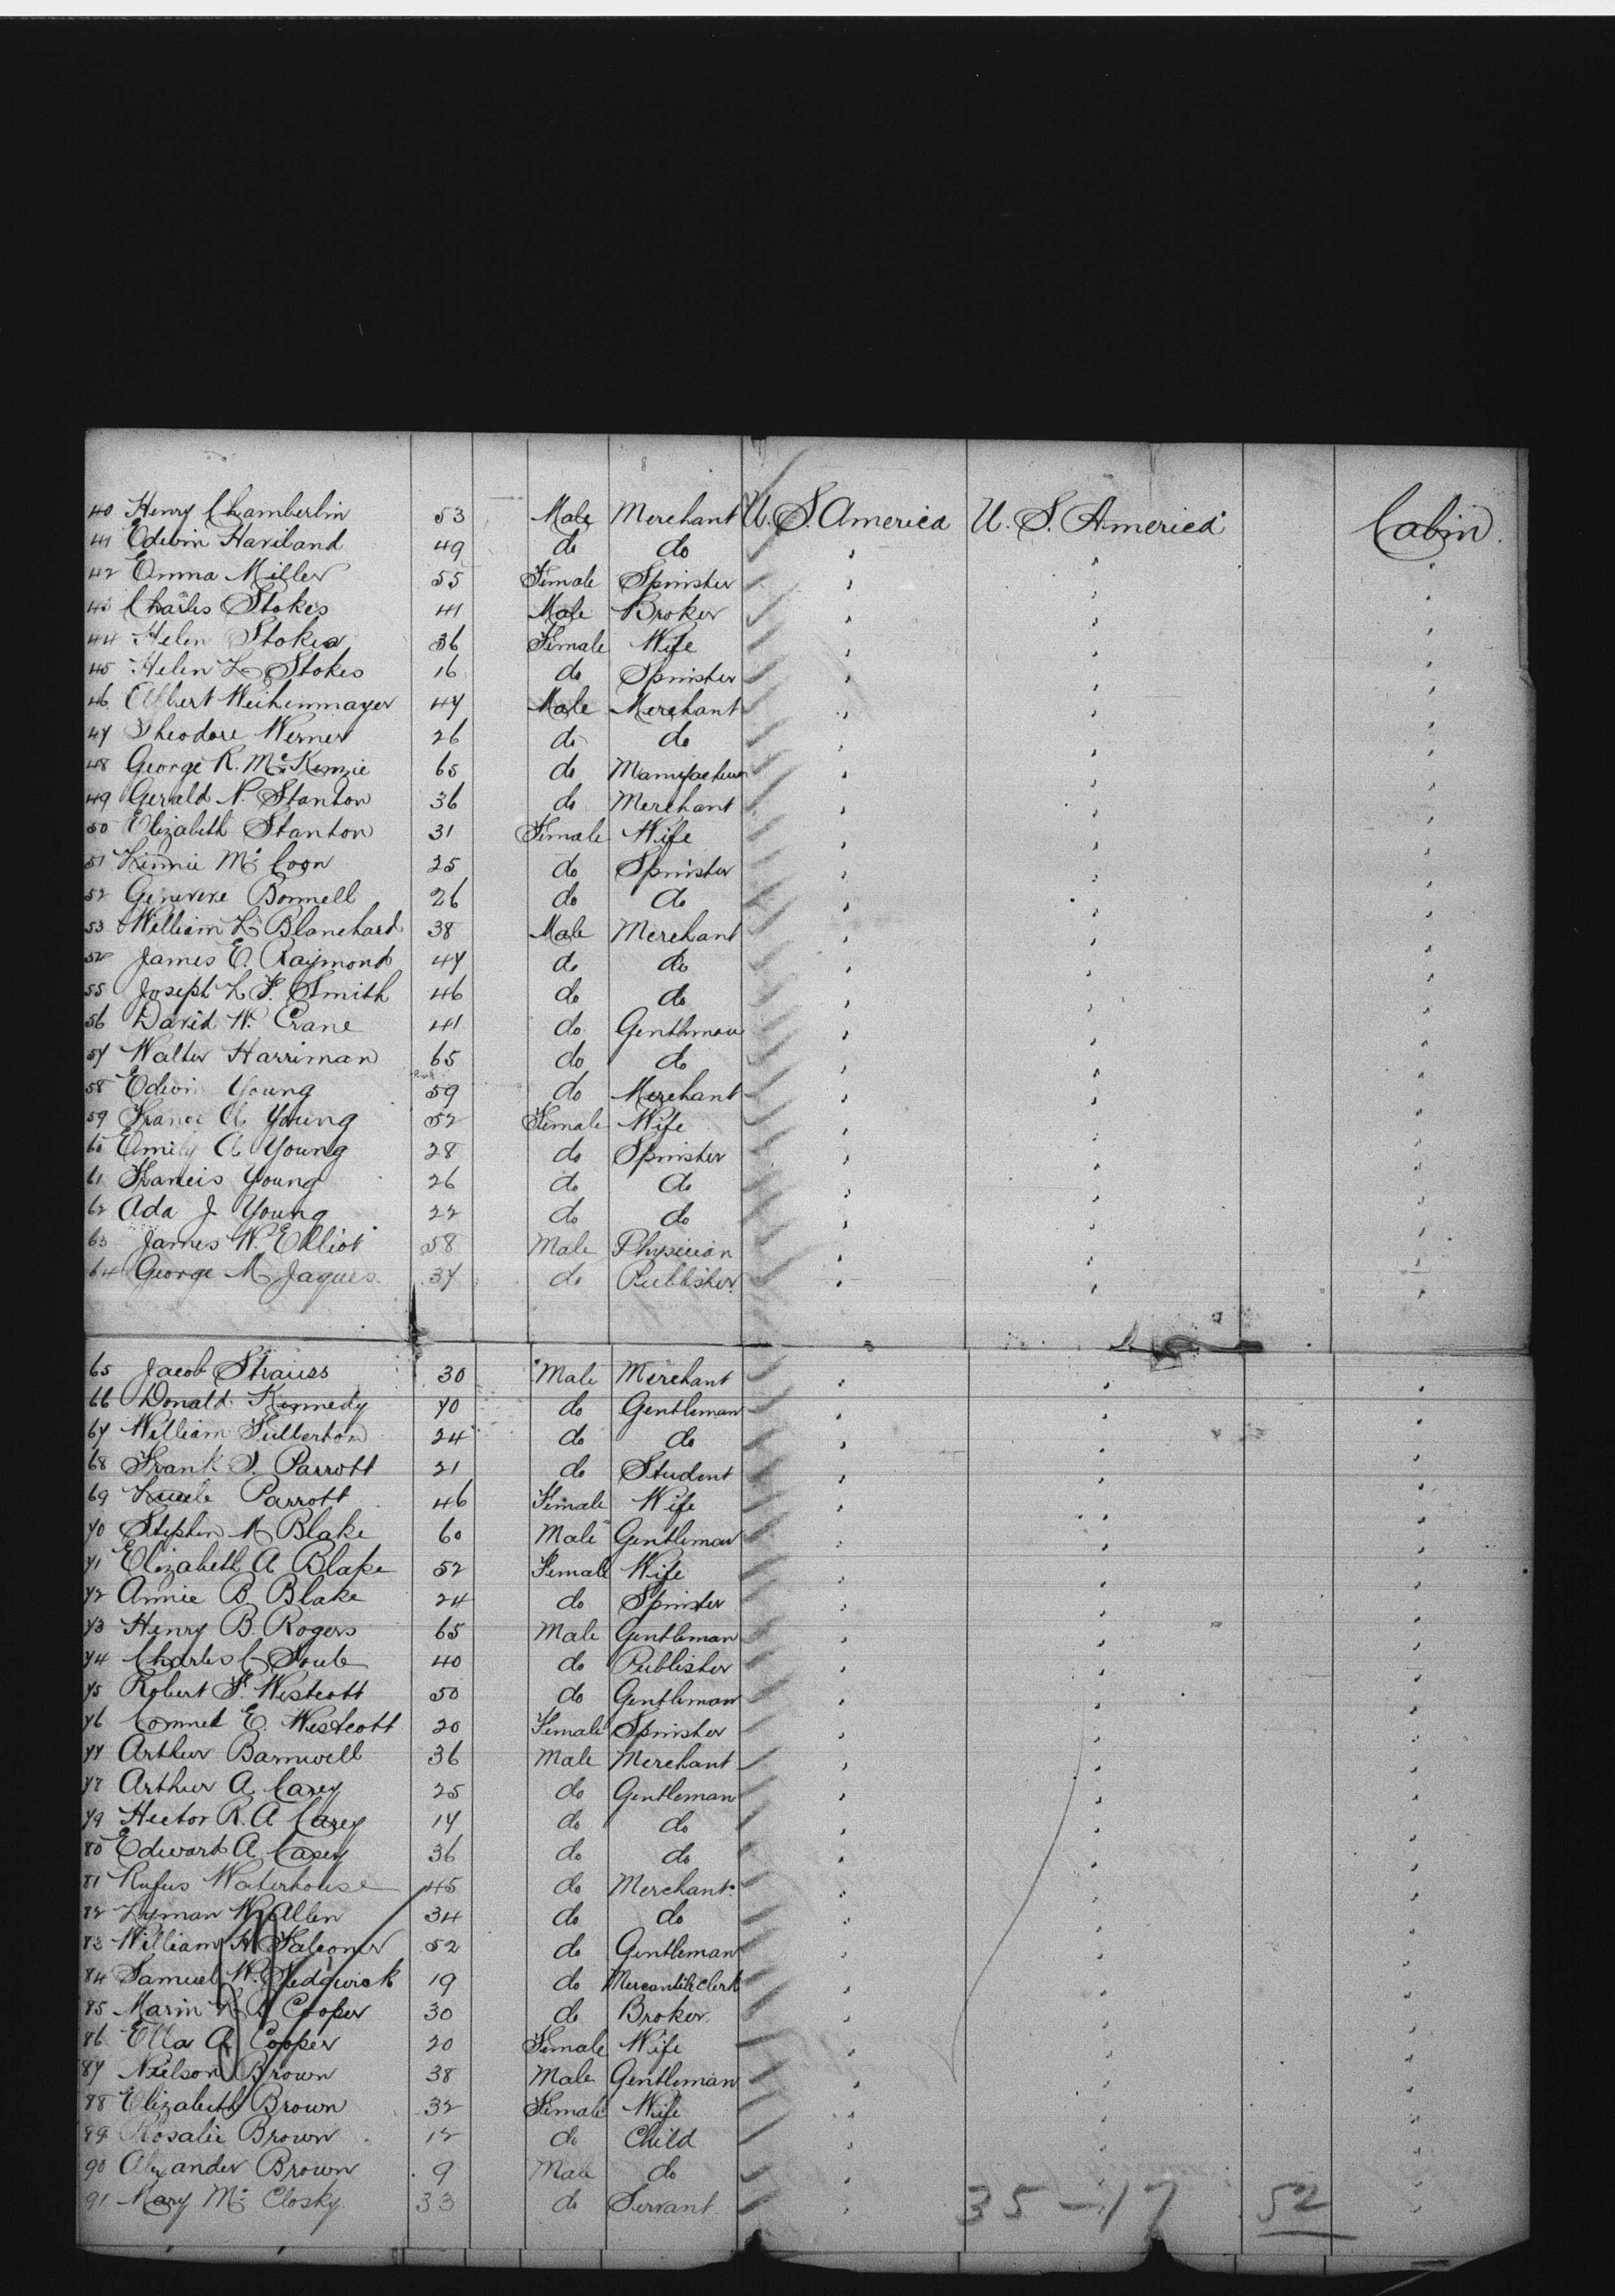 40 Henry Chamberlin 53 Male Merchant U. S. America U. S. America Cabin.
41 Edwin Haviland 49 do do " " "
42 Emma Miller 55 Female Spinster " " "
43 Charles Stokes 41 Male Broker " " "
44 Helen Stokes 36 Female Wife " " "
45 Helen L Stokes 16 do Spinster " " "
46 Albert Weihenmayer 47 Male Merchant " " "
47 Theodore Werner 26 do do " " "
48 George R. McKenzie 65 do Manufacturer " " "
49 Gerald N. Stanton 36 do Merchant " " "
50 Elizabeth Stanton 31 Female Wife " " "
51 Mc Coon 25 do Spinster " " "
52 Genevive Bonnell 26 do do " " "
53 William L Blanchard 38 Male Merchant " " "
54 James E. Raymond 47 do do " " "
55 Joseph L. F. Smith 46 do do " " "
56 David W. Crane 41 do Gentleman " " "
57 Walter Harriman 65 do do " " "
58 Edwin Young 59 do Merchant " " "
59 A. Young 52 Female Wife " " "
60 Emily A. Young 28 do Spinster " " "
61 Francis Young 26 do do " " "
62 Ada J Young 22 do do " " "
63 James W. Elliot 58 Male Physician " " "
64 George M Jaques 37 do Publisher " " "
65 Jacob Strauss 30 Male Merchant " " "
66 Donald Kennedy 70 do Gentleman " " "
67 William Fullerton 24 do do " " "
68 Frank S. Parrott 21 do Student " " "
69 Parrott 46 Female Wife " " "
70 Stephen M Blake 60 Male Gentleman " " "
71 Elizabeth A Blake 52 Female Wife " " "
72 Annie B Blake 24 do Spinster " " "
73 Henry B. Rogers 65 Male Gentleman " " "
74 Charles C Soule 40 do Publisher " " "
75 Robert F. Westcott 50 do Gentleman " " "
76 E. Westcott 20 Female Spinster " " "
77 Arthur Barnwell 36 Male Merchant " " "
78 Arthur A. Carey 25 do Gentleman " " "
79 Hector R. A Carey 17 do do " " "
80 Edward A Casey 36 do do " " "
81 Rufus Waterhouse 45 do Merchant " " "
82 Lyman W Allen 34 do do " " "
83 William H Falconer 52 do Gentleman " " "
84 Samuel W. Sedgwick 19 do Mercantile Clerk " " "
85 Marin Cooper 30 do Broker " " "
86 Ella A Cooper 20 Female Wife " " "
87 Neilson Brown 38 Male Gentleman " " "
88 Elizabeth Brown 32 Female Wife " " "
89 Rosalie Brown 12 do Child " " "
90 Alexander Brown 9 Male do " " "
91 Mary Mc Closky 33 do Servant " " "
35 - 17 52